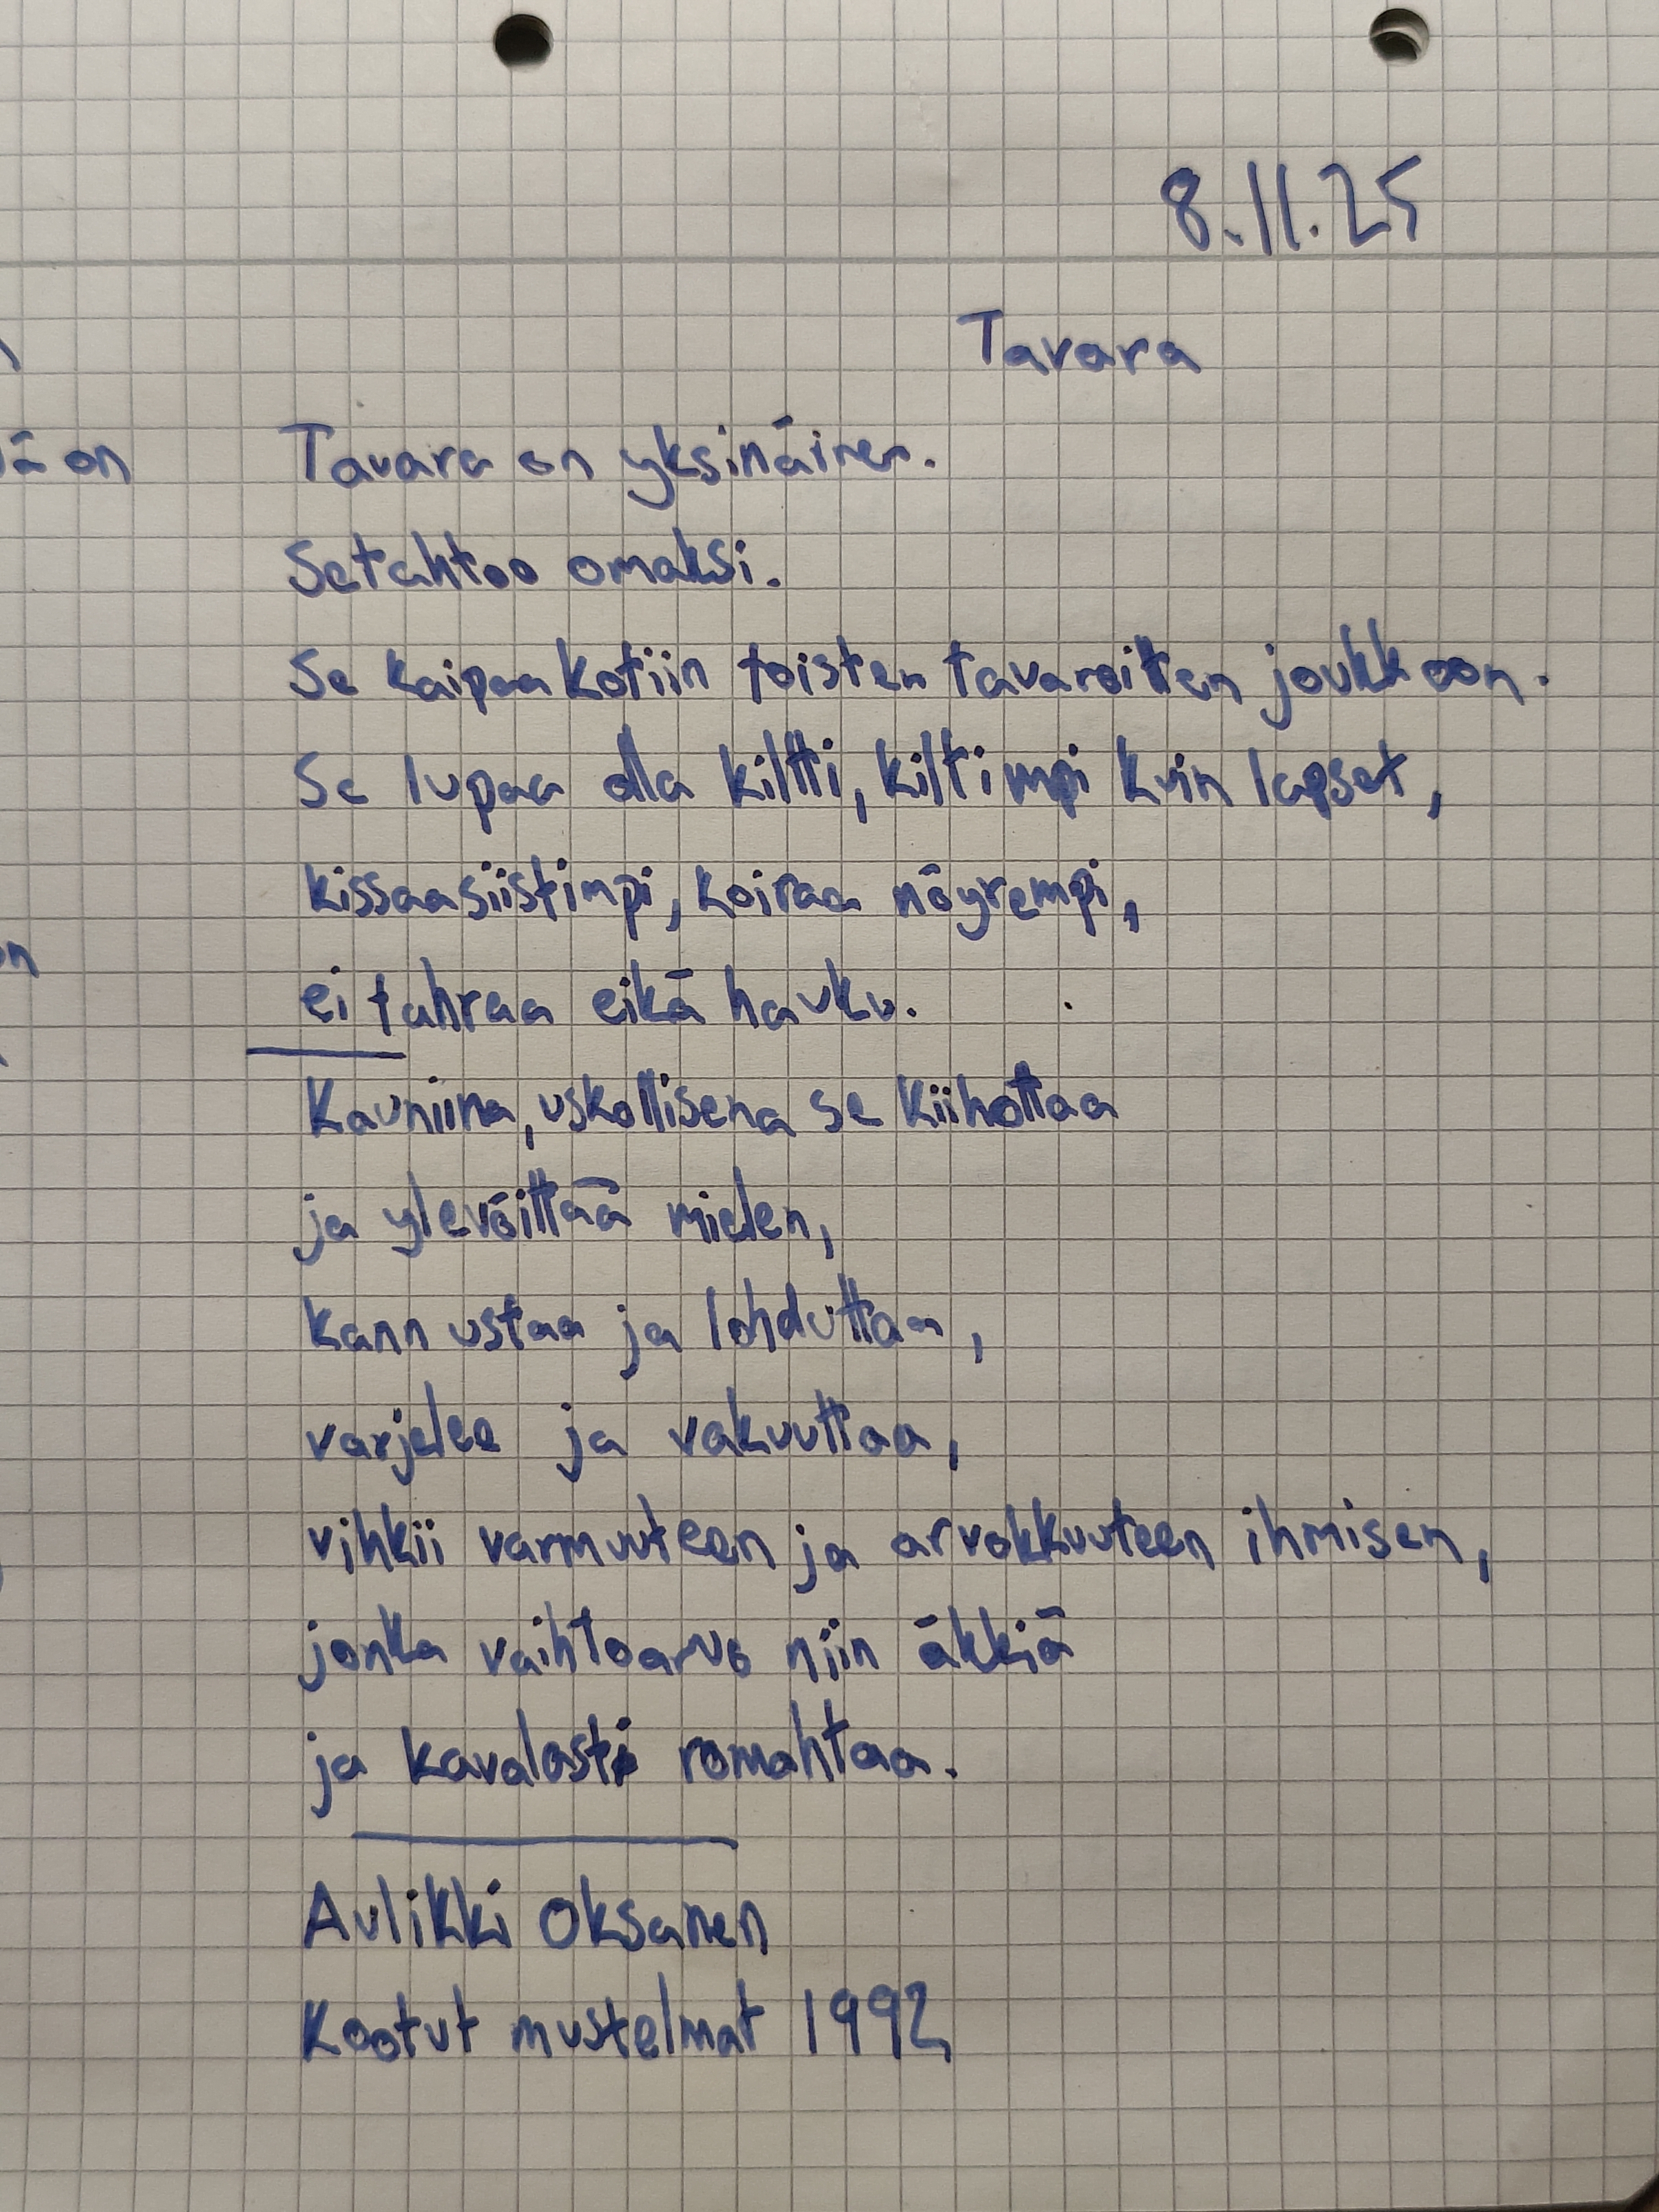 8.11.25
Tavara
ä on
Tavara on yksinäinen.
Se tahtoo omaksi.
Se kaipaa kotiin toisten tavaroitten joukkoon.
Se lupaa olla kiltti, kiltimpi kuin lapset,
kissaa siistimpi, koiraa nöyrempi,
ei tahraa eikä hauku.
Kauniina, uskollisena se kiihottaa
ja ylevöittää mielen,
kannustaa ja lohduttaa,
varjelee ja vakuuttaa,
vihkii varmuuteen ja arvokkuuteen ihmisen,
jonka vaihtoarvo niin äkkiä
ja kavalasti romahtaa.
Aulikki Oksanen
Kootut mustelmat 1992